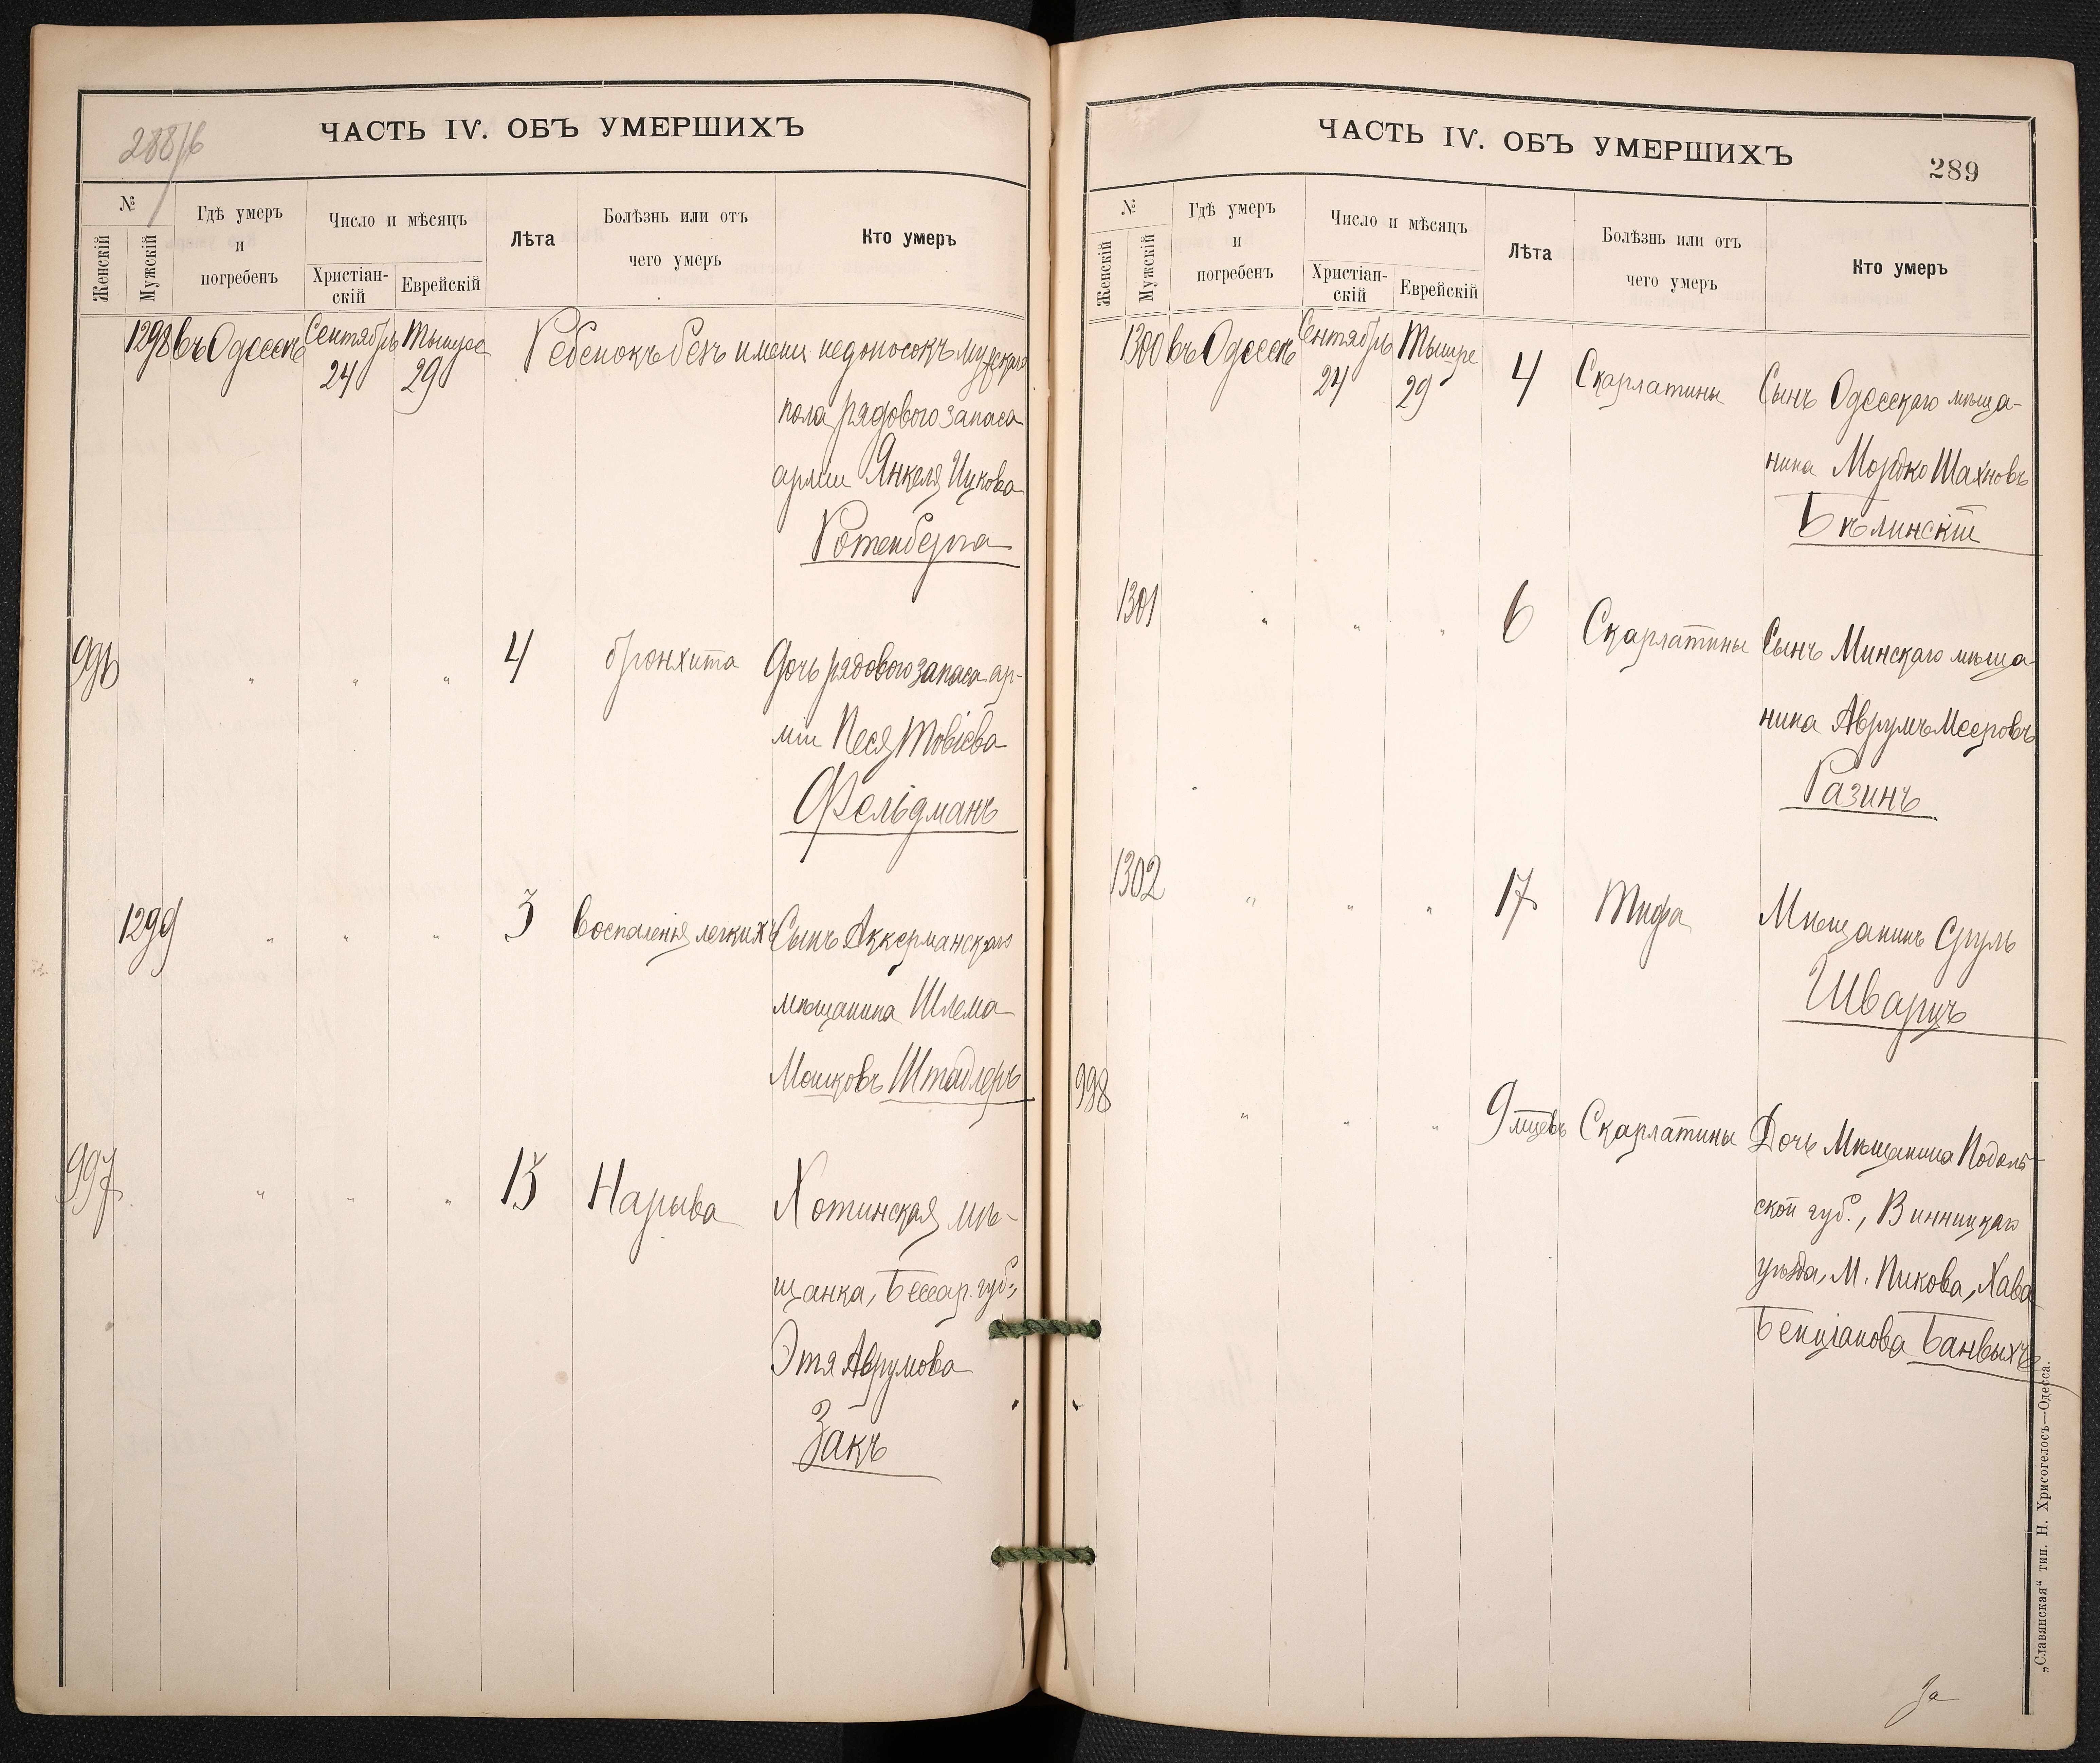 288/б
ЧАСТЬ IV. ОБЪ УМЕРШИХЪ
№
Женскій
Мужскій
Гдѣ умеръ
и
погребенъ
Число и мѣсяцъ
Христіан-
скій
Еврейскій
Лѣта
Болѣзнь или отъ
чего умеръ
Кто умеръ
1298 въ Одессѣ Сентябрь 24 Тышре 29 Ребенокъ безъ имени недоносокъ мужскаго
пола рядового запаса
арміи Янкеля Ицкова
Ротенберга
996 " " " 4 бронхита Дочь рядового запаса ар-
міи Песя Товіева
Фельдманъ
1299 " " " 3 Воспаленія легкихъ Сынъ Аккерманскаго
мѣщанина Шлема
Мошковъ Штадлеръ
997 " " " 15 Нарыва Хотинская мѣ-
щанка, Бессар. губ.,
Этя Аврумова
Закъ
ЧАСТЬ IV. ОБЪ УМЕРШИХЪ
289
№
Женскій
Мужскій
Гдѣ умеръ
и
погребенъ
Число и мѣсяцъ
Христіан-
скій
Еврейскій
Лѣта
Болѣзнь или отъ
чего умеръ
Кто умеръ
1300 въ Одессѣ Сентябрь 24 Тышре 29 4 Скарлатины Сынъ Одесскаго мѣща-
нина Мордко Шахновъ
Бѣлинскій
1301 " " " 6 Скарлатины Сынъ Минскаго мѣща
нина Аврумъ Мееровъ
Разинъ
1302 " " " 17 Тифа Мѣщанинъ Сруль
Шварцъ
998 " " " 9 мцевъ Скарлатины Дочь Мѣщанина Подоль-
ской губ., Винницкаго
уѣзда, М. Пикова, Хава
Бенціанова Банвыхъ
За
„Славянская“ тип. Н. Хрисогелосъ—Одесса.